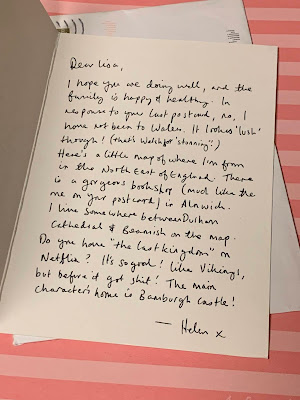 Dear Lisa,
I hope you are doing well, and the
family is happy & healthy. In
response to your last postcard, no, I
have not been to Wales. It looks 'lush'
though! (that's Welsh for 'stunning')
Here's a little map of where I'm from
in the North East of England. There
is a gorgeous bookshop (much like the
one on your postcard) in Alnwick.
I live somewhere between Durham
Cathedral & Beamish on the map.
Do you have "the last kingdom" on
Netflix? It's so good! like Vikings,
but before it got shit! The main
character's home is Bamburgh Castle!
— Helen x